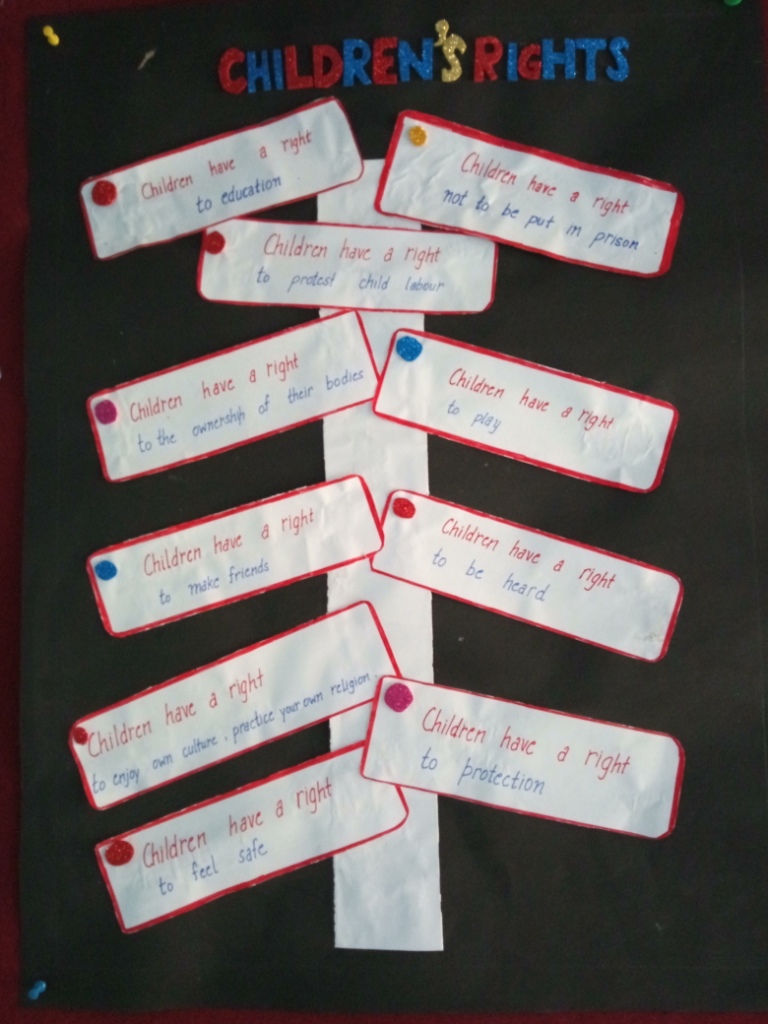 CHILDREN'S RIGHTS
Children have a right
to education
Children have a right
not to be put in prison
Children have a right
to protest child labour
Children have a right
to the ownership of their bodies
Children have a right
to play
Children have a right
to make friends
Children have a right
to be heard
Children have a right
to enjoy own culture, practice your own religion.
Children have a right
to protection
Children have a right
to feel safe